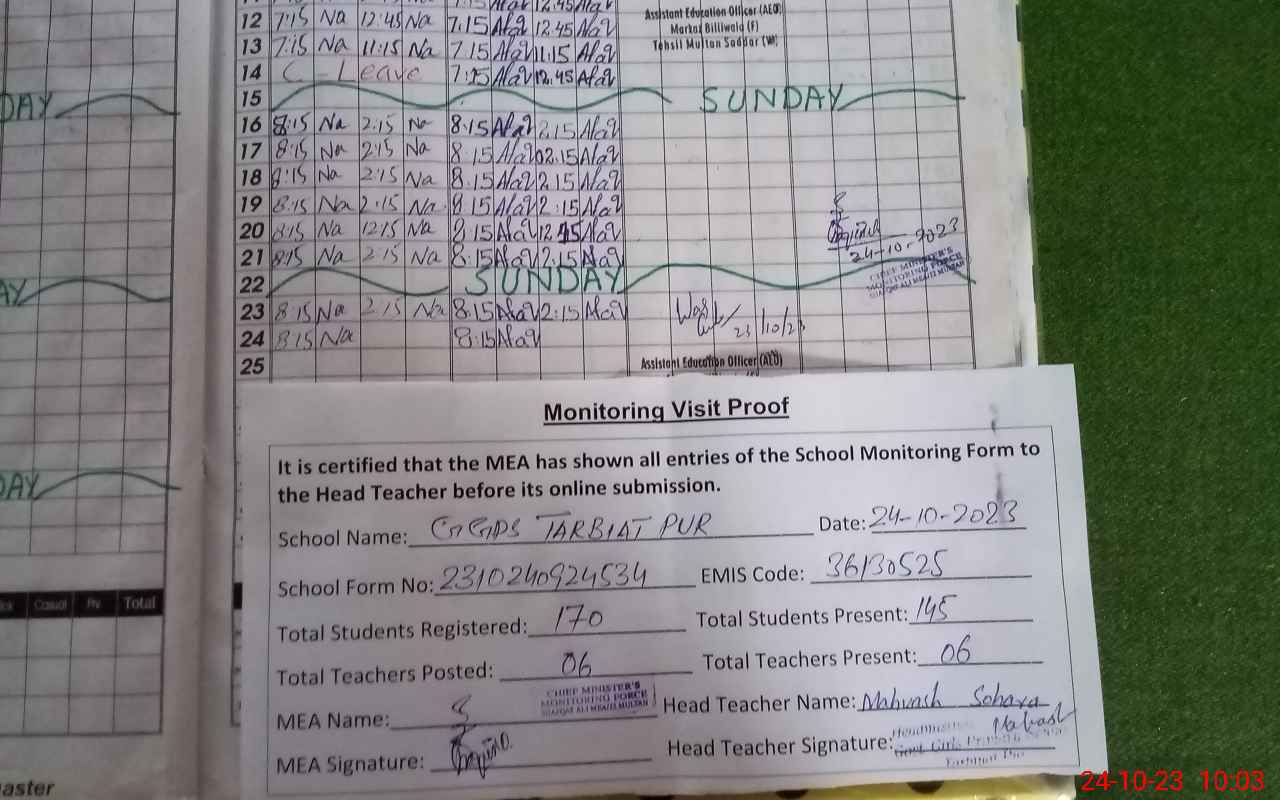 12 7:15 Na 12:45 Na 7.15 Afaq 12.45 Afaq
Assistant Education Officer (AEO)
Markaz Billiwala (F)
Tehsil Multan Saddar (W)
13 7:15 Na 11:15 Na 7.15 Afaq 11.15 Afaq
14 C - Leave 7:15 Afaq 12.45 Afaq
DAY
15 SUNDAY
16 8:15 Na 2:15 Na 8.15 Afaq 2.15 Afaq
17 8:15 Na 2:15 Na 8.15 Afaq 02.15 Afaq
18 8:15 Na 2:15 Na 8.15 Afaq 2.15 Afaq
19 8:15 Na 2:15 Na 8.15 Afaq 2:15 Afaq
20 8:15 Na 12:15 Na 8.15 Afaq 12.45 Afaq
21 8:15 Na 2:15 Na 8:15 Afaq 2:15 Afaq
24-10-2023
CHIEF MINISTER'S
MONITORING FORCE
AY
22 SUNDAY
23 8:15 Na 2:15 Na 8.15 Afaq 2:15 Afaq
23/10/23
24 8:15 Na 8:15 Afaq
25
Assistant Education Officer (AEO)
Monitoring Visit Proof
It is certified that the MEA has shown all entries of the School Monitoring Form to
the Head Teacher before its online submission.
DAY
School Name: GGPS TARBIAT PUR Date: 24-10-2023
School Form No: 2310240924534 EMIS Code: 36130525
Total Students Registered: 170 Total Students Present: 145
Total Teachers Posted: 06 Total Teachers Present: 06
Casual Prv Total
CHIEF MINISTER'S
MONITORING FORCE
MEA Name: Head Teacher Name: Mahvash
MEA Signature: Head Teacher Signature: Mahvash
aster
24-10-23 10:03